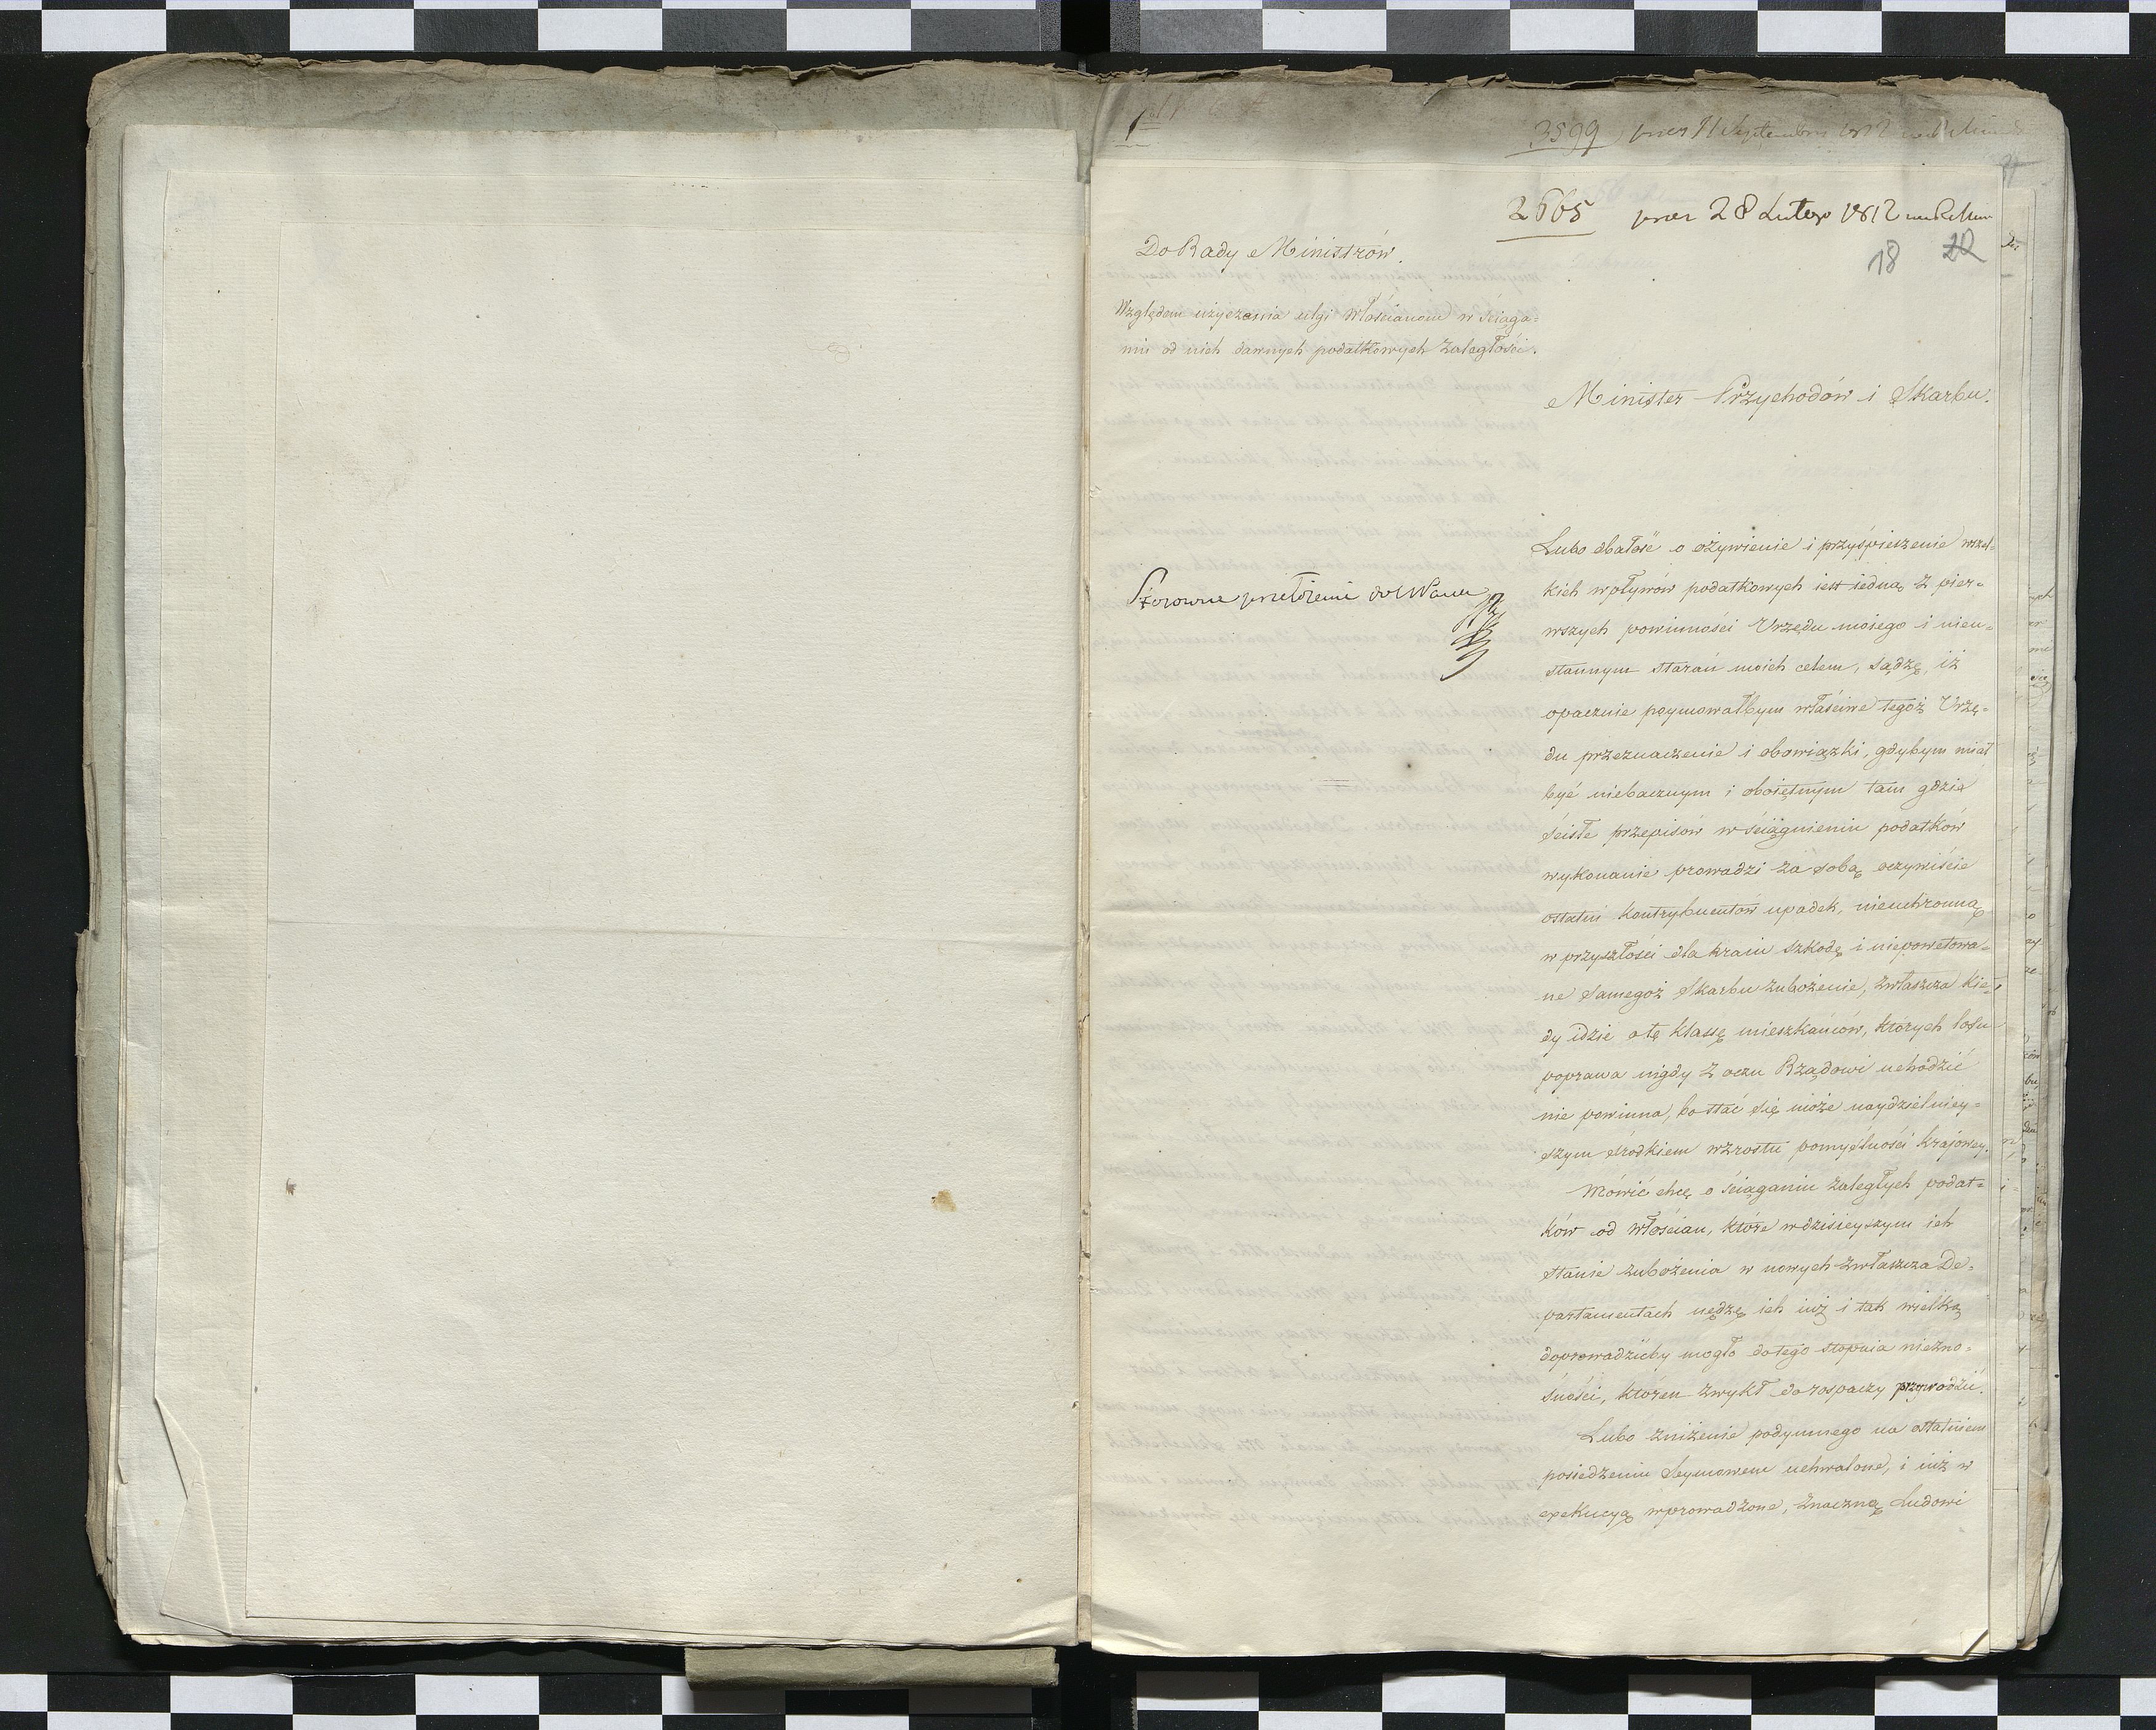 3599
2665 28 Lutego 1812
18 20
Do Rady Ministrów.
Względem użyczenia ulgi Włościanom w ściąga=
niu od nich dawnych podatkowych zaległości.
Minister Przychodów i Skarbu.
Lubo dbałość o ożywienie i przyśpieszenie wszel=
kich wpływów podatkowych iest iedną z pier=
wszych powinności Urzędu moiego i nieu=
stannym starań moich celem, sądzę, iż
opacznie poymowałbym właściwe tegoż Urzę=
du przeznaczenie i obowiązki, gdybym miał
być niebacznym i oboiętnym tam gdzie
ścisłe przepisów w ściągnieniu podatków
wykonanie prowadzi za sobą oczywiście
ostatni kontrybuentów upadek, nieuchronną
w przyszłości dla kraiu szkodę i niepowetowa=
ne samegoż Skarbu zubożenie, zwłaszcza kie=
dy idzie o tę klassę mieszkańców, których losu
poprawa nigdy z oczu Rządowi uchodzić
nie powinna, bo stać się może naydzielniey=
szym środkiem wzrostu pomyślności krajowey.
Mówić chcę o ściąganiu zaległych podat=
ków od włościan, które w dzisieyszym ich
stanie zubożenia w nowych zwłaszcza De=
partamentach nędzę ich iuż i tak wielką
doprowadzićby mogło do tego stopnia niezno=
śności, któren zwykł do rospaczy przywodzić.
Lubo zniżenie podymnego na ostatniem
posiedzeniu Seymowem uchwalone, i iuż w
exekucyą wprowadzone, znaczną Ludowi